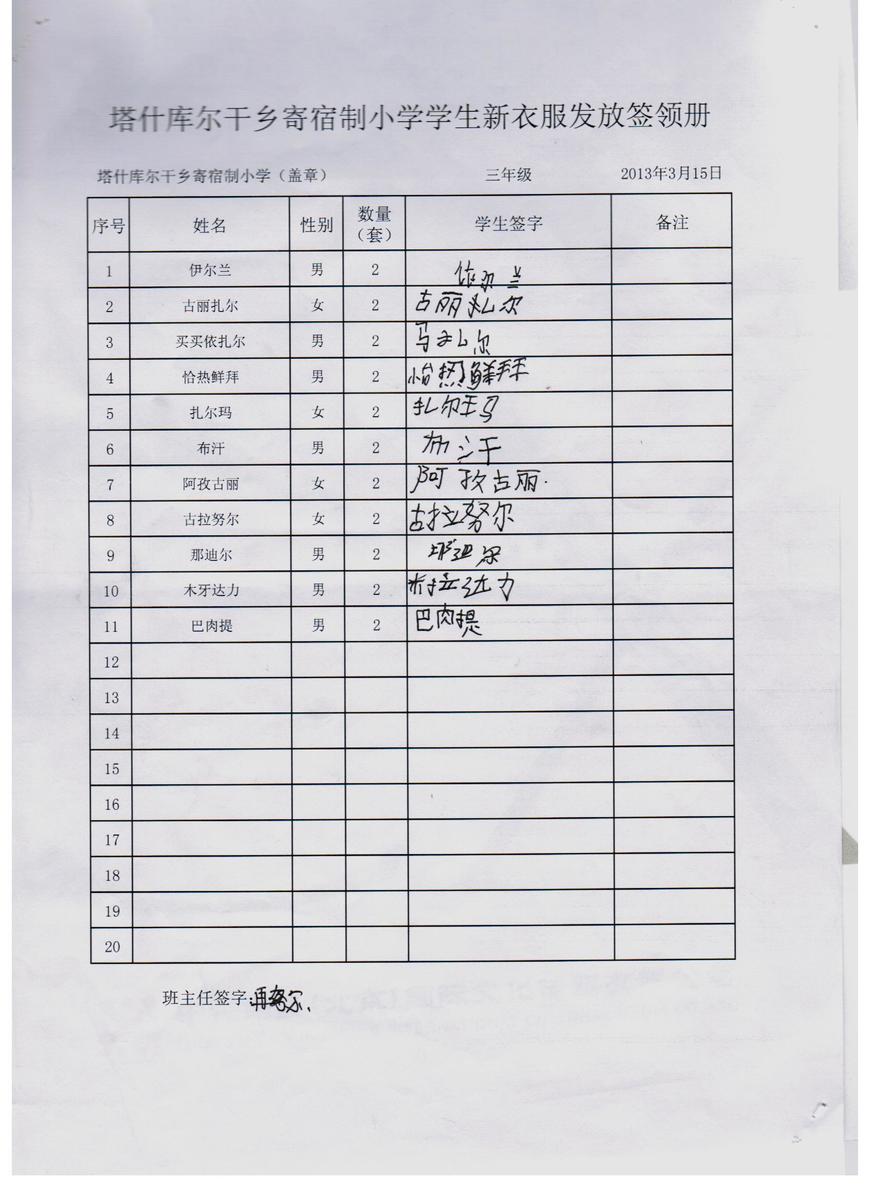 塔什库尔干乡寄宿制小学学生新衣服发放签领册
塔什库尔干乡寄宿制小学（盖章） 三年级 2013年3月15日
序号 姓名 性别 数量（套） 学生签字 备注
1 伊尔兰 男 2 依尔兰
2 古丽扎尔 女 2 古丽扎尔
3 买买依扎尔 男 2 马扎尔
4 恰热鲜拜 男 2 恰热鲜拜
5 扎尔玛 女 2 扎尔玛
6 布汗 男 2 布汗
7 阿孜古丽 女 2 阿孜古丽.
8 古拉努尔 女 2 古拉努尔
9 那迪尔 男 2 那迪尔
10 木牙达力 男 2 木拉达力
11 巴肉提 男 2 巴肉提
12
13
14
15
16
17
18
19
20
班主任签字: